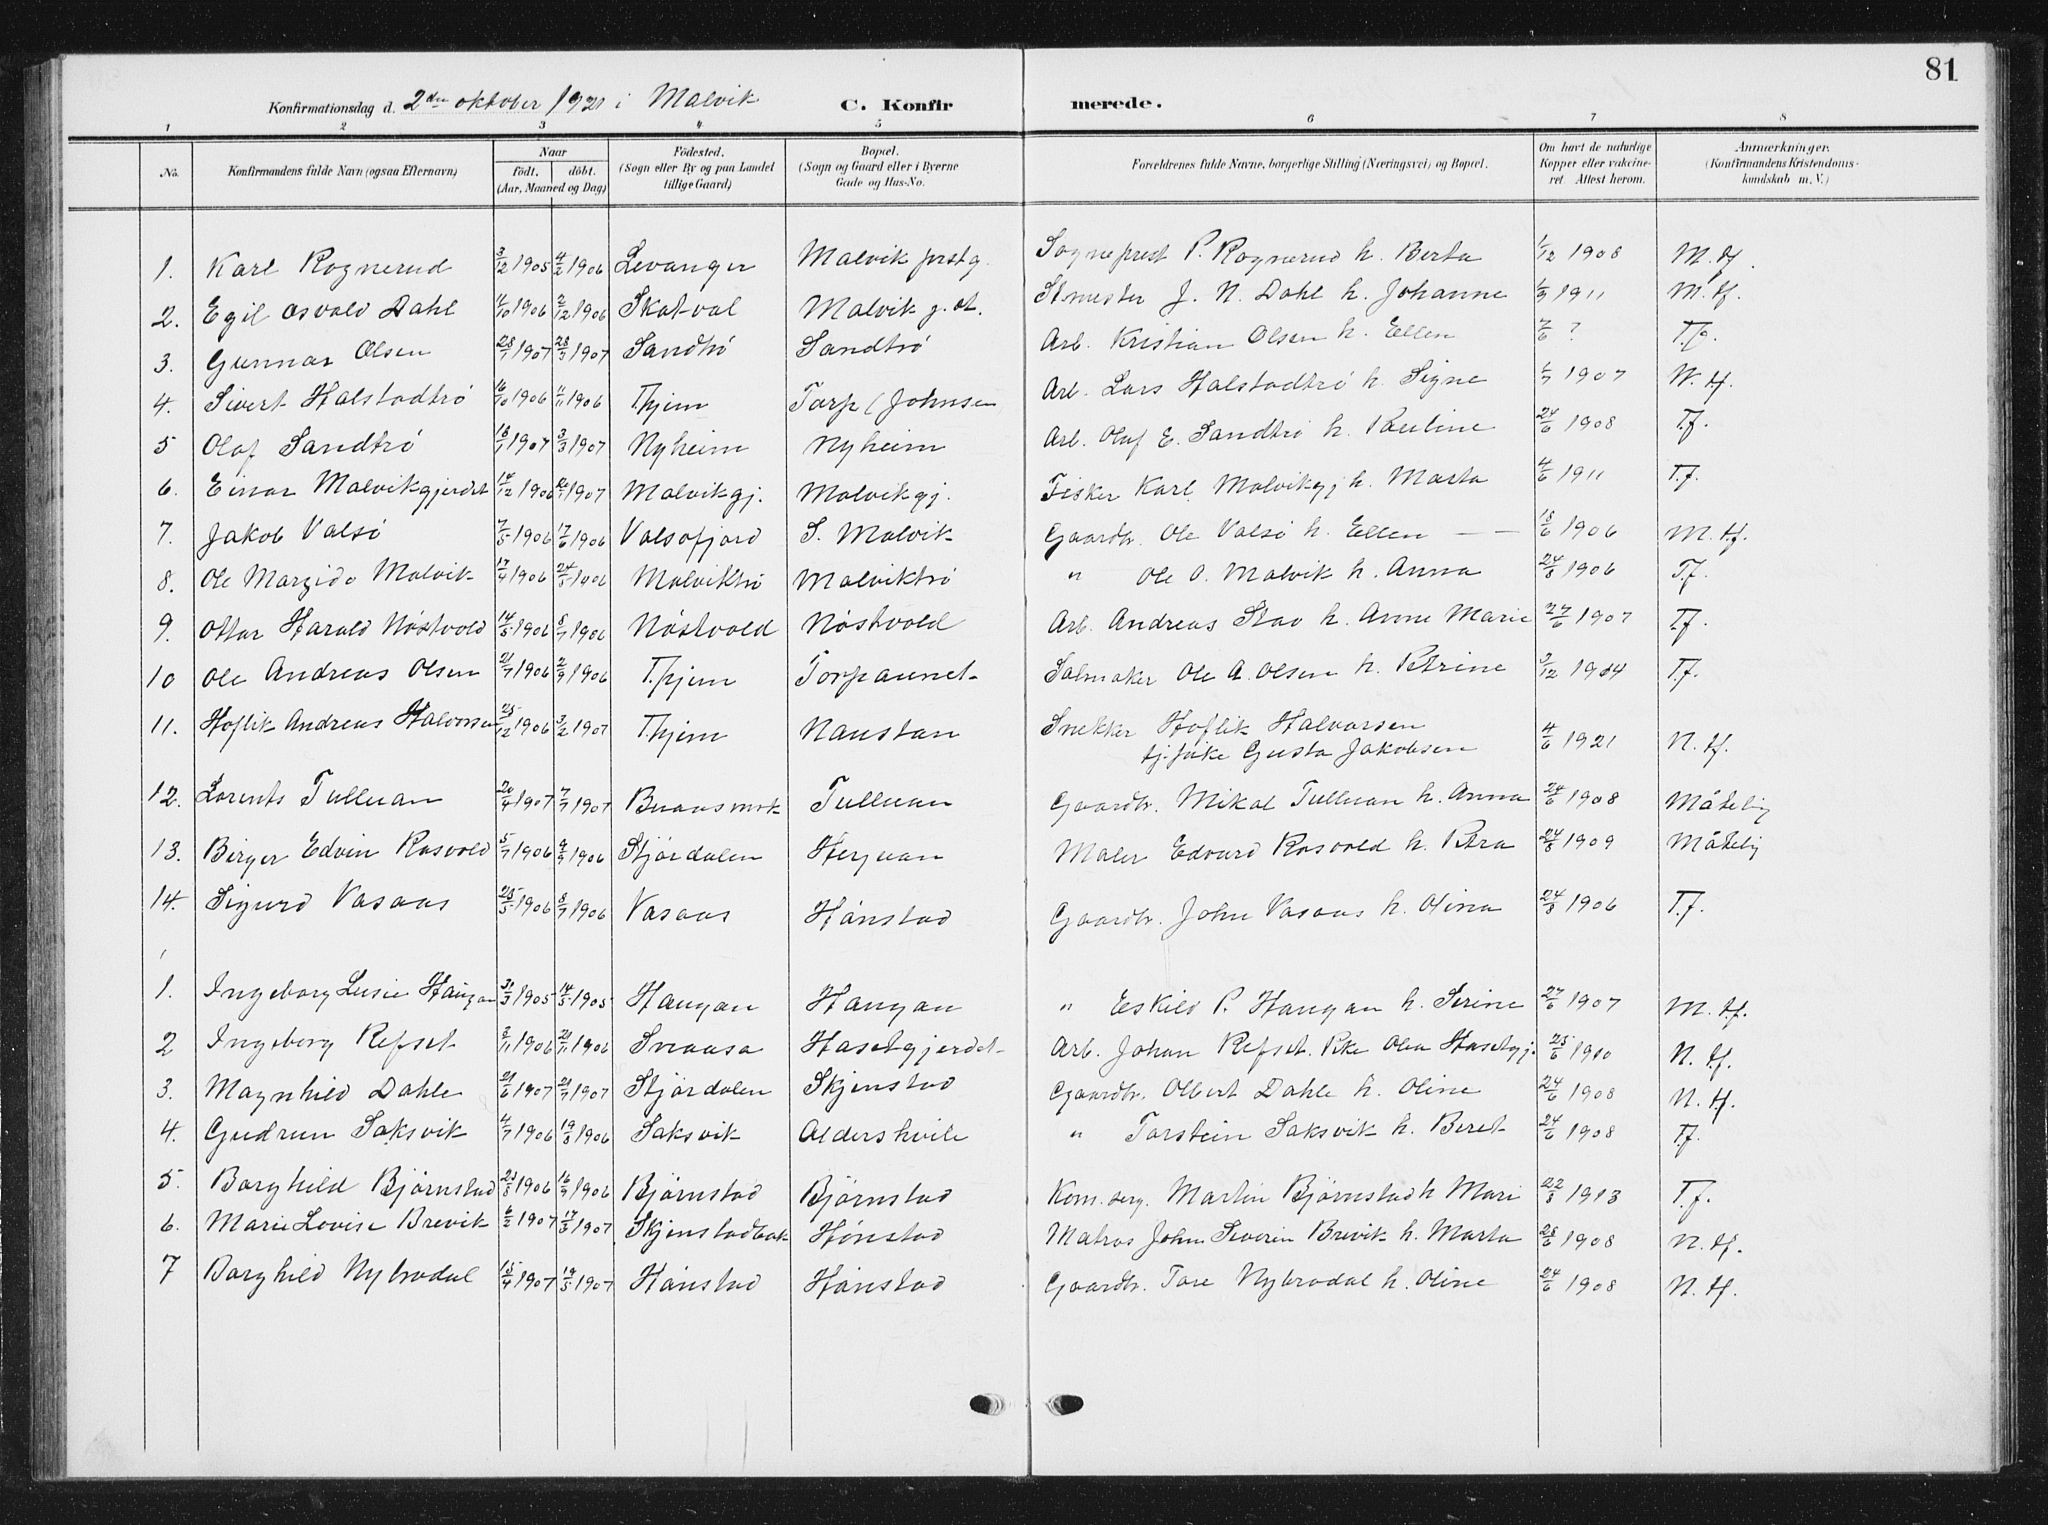 81
Konfirmationsdag d. 2den oktober 1921 i Malvik C. Konfirmerede.
1 2 3 4 5 6 7 8
No. Konfirmandens fulde Navn (ogsaa Efternavn) Naar født. døbt. (Aar, Maaned og Dag) Fødested. (Sogn eller By og paa Landet tillige Gaard) Bopæl. (Sogn og Gaard eller i Byerne Gade og Hus-No. Forældrenes fulde Navne, borgerlige Stilling (Næringsvei) og Bopæl. Om havt de naturlige Kopper eller vakcineret. Attest herom. Anmærkninger. (Konfirmandens Kristendomskundskab m. V.)
1. Karl Rognerud 3/12 1905 4/2 1906 Levanger Malvik prstg. Sogneprest P. Rognerud h. Berta 1/12 1908 M. tf.
2. Egil Osvald Dahl 4/10 1906 2/12 1906 Skatval Malvik j. st. Stmester J. N. Dahl h. Johanne 1/9 1911 M. tf.
3. Gunnar Olsen 28/1 1907 28/3 1907 Sandtrö Sandtrö Arb. Kristian Olsen h. Ellen 7/6 ? T.f.
4. Sivert Halstadtrö 16/10 1906 11/11 1906 T.hjem Torp (Johnsen Arb. Lars Halstadtrö h. Signe 1907 N. tf.
5 Olaf Sandtrö 18/1 1907 3/3 1907 Nyheim Nyheim Arb. Olaf E. Sandtrö h. Pauline 24/6 1908 T.f.
6. Einar Malvikgjerdet 14/12 1906 1907 Malvikgj. Malvikgj. Fisker Karl Malvikgj h. Marta 4/6 1911 T.f.
7. Jakob Valsö 7/5 1906 17/6 1906 Valsøfjord S. Malvik Gaardbr. Ole Valsö h. Ellen — — 18/6 1906 M. tf.
8. Ole Margido Malvik 17/4 1906 24/5 1906 Malviktrö Malviktrö " Ole O. Malvik h. Anna 24/8 1906 T.f.
9. Ottar Harald Nöstvold 14/5 1906 8/7 1906 Nöstvold Nöstvold Arb. Andreas Stav h. Anne Marie 27/6 1907 T.f.
10 Ole Andreas Olsen 21/7 1906 2/9 1906 T.hjem Torpaunet Salmaker Ole A. Olsen h. Petrine 3/12 1914 T.f.
11. Hoflik Andreas Halvorsen 25/12 1906 3/2 1907 T.hjem Naustan Snekker Hoflik Halvorsen 4/6 1921 N. tf.
tj.pike Gusta Jakobsen
12. Lorents Tulluan 20/4 1907 7/7 1907 Buaasmrk Tulluan Gaardbr. Mikal Tulluan h. Anna 24/6 1908 Måtelig
13. Birger Edvin Rosvold 5/7 1906 9/9 1906 Stjördalen Herjuan Maler Edvard Rosvold h. Petra 24/8 1909 Måtelig
14. Sigurd Vasaas 28/5 1906 8/7 1906 Vasaas Hönstad Gaardbr. John Vasaas h. Olina 24/8 1906 T.f.
1. Ingeborg Lusie Haugan 31/3 1905 14/5 1905 Haugan Haugan " Eskild P. Haugan h. Serine 27/6 1907 M. tf.
2 Ingeborg Refset 3/11 1906 1906 Snaasa Hasetgjerdet Arb. Johan Refset. Pke Olea Hasetgj. 25/6 1910 N. tf.
3. Magnhild Dahle 21/6 1907 21/7 1907 Stjördalen Skjenstad Gaardbr. Olbert Dahle h. Oline 24/6 1908 N. tf.
4. Gudrun Saksvik 4/7 1906 19/8 1906 Saksvik Aldershvile " Torstein Saksvik h. Beret 24/6 1908 T.f.
5. Borghild Björnstad 23/8 1906 16/9 1906 Björnstad Björnstad Kom.serg. Martin Björnstad h Mari 22/8 1913 T.f.
6. Marie Lovise Brevik 6/2 1907 17/3 1907 Skjenstadbak Hönstad Matros John Severin Brevik h. Marta 28/6 1908 N. tf.
7 Borghild Nybrodal 15/4 1907 19/5 1907 Hönstad Hönstad Gaardbr. Tore Nybrodal h. Oline 24/6 1908 N. tf.